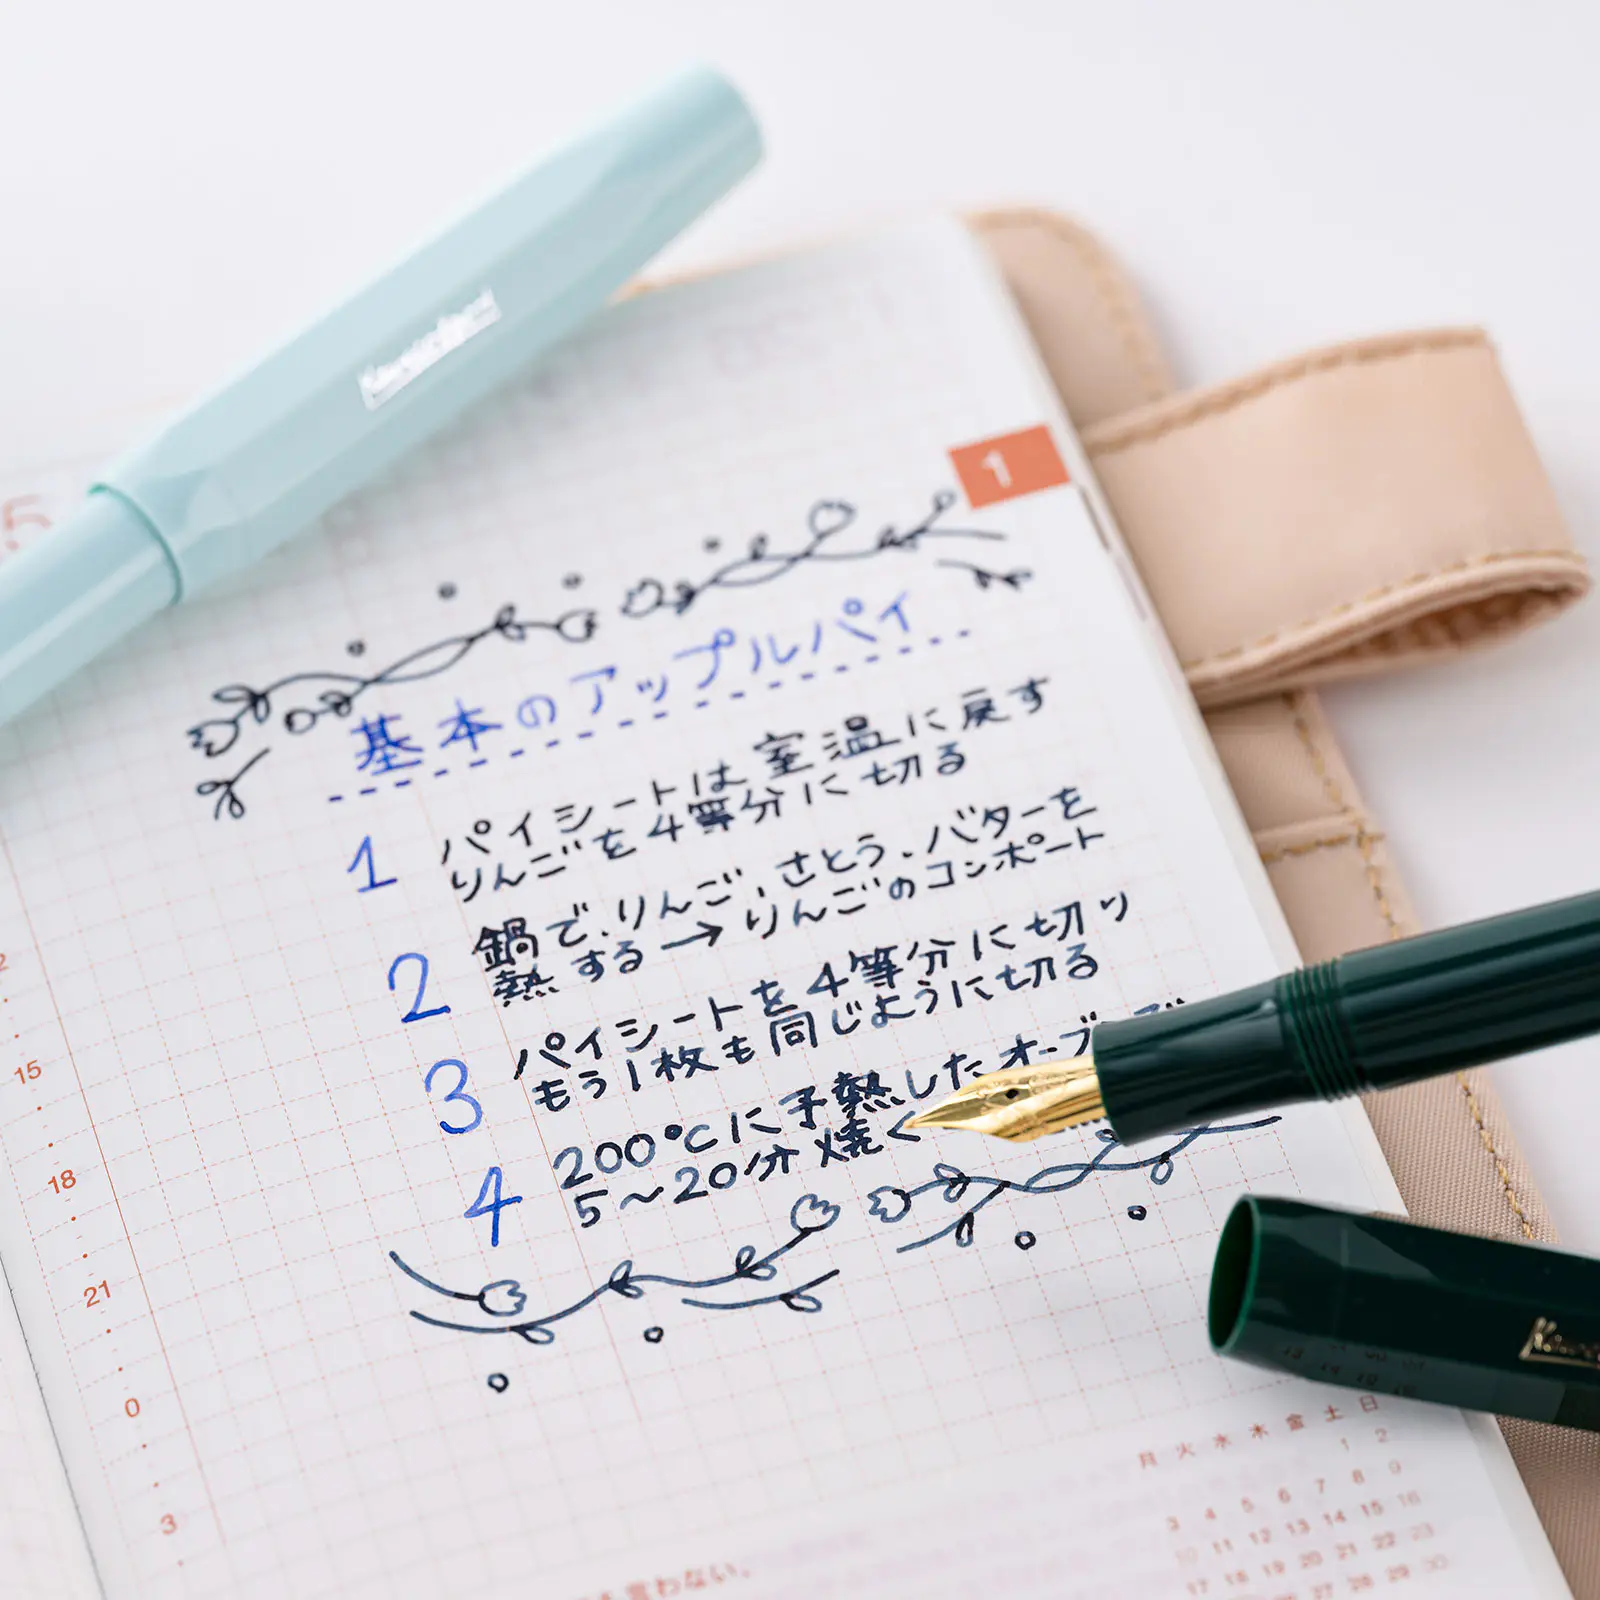 1
基本のアップルパイ
1 パイシートは室温に戻す
りんごを4等分に切る
2 鍋で、りんご、さとう、バターを
熱する→りんごのコンポート
3 パイシートを4等分に切り
もう1枚も同じように切る
4 200℃に予熱したオーブ
5～20分焼く
15
18
21
0
3
月 火 水 木 金 土 日
1 2
3 4 5 6 7 8 9
10 11 12 13 14 15 16
17 18 19 20 21 22 23
26 27 28 29 30
言わない。